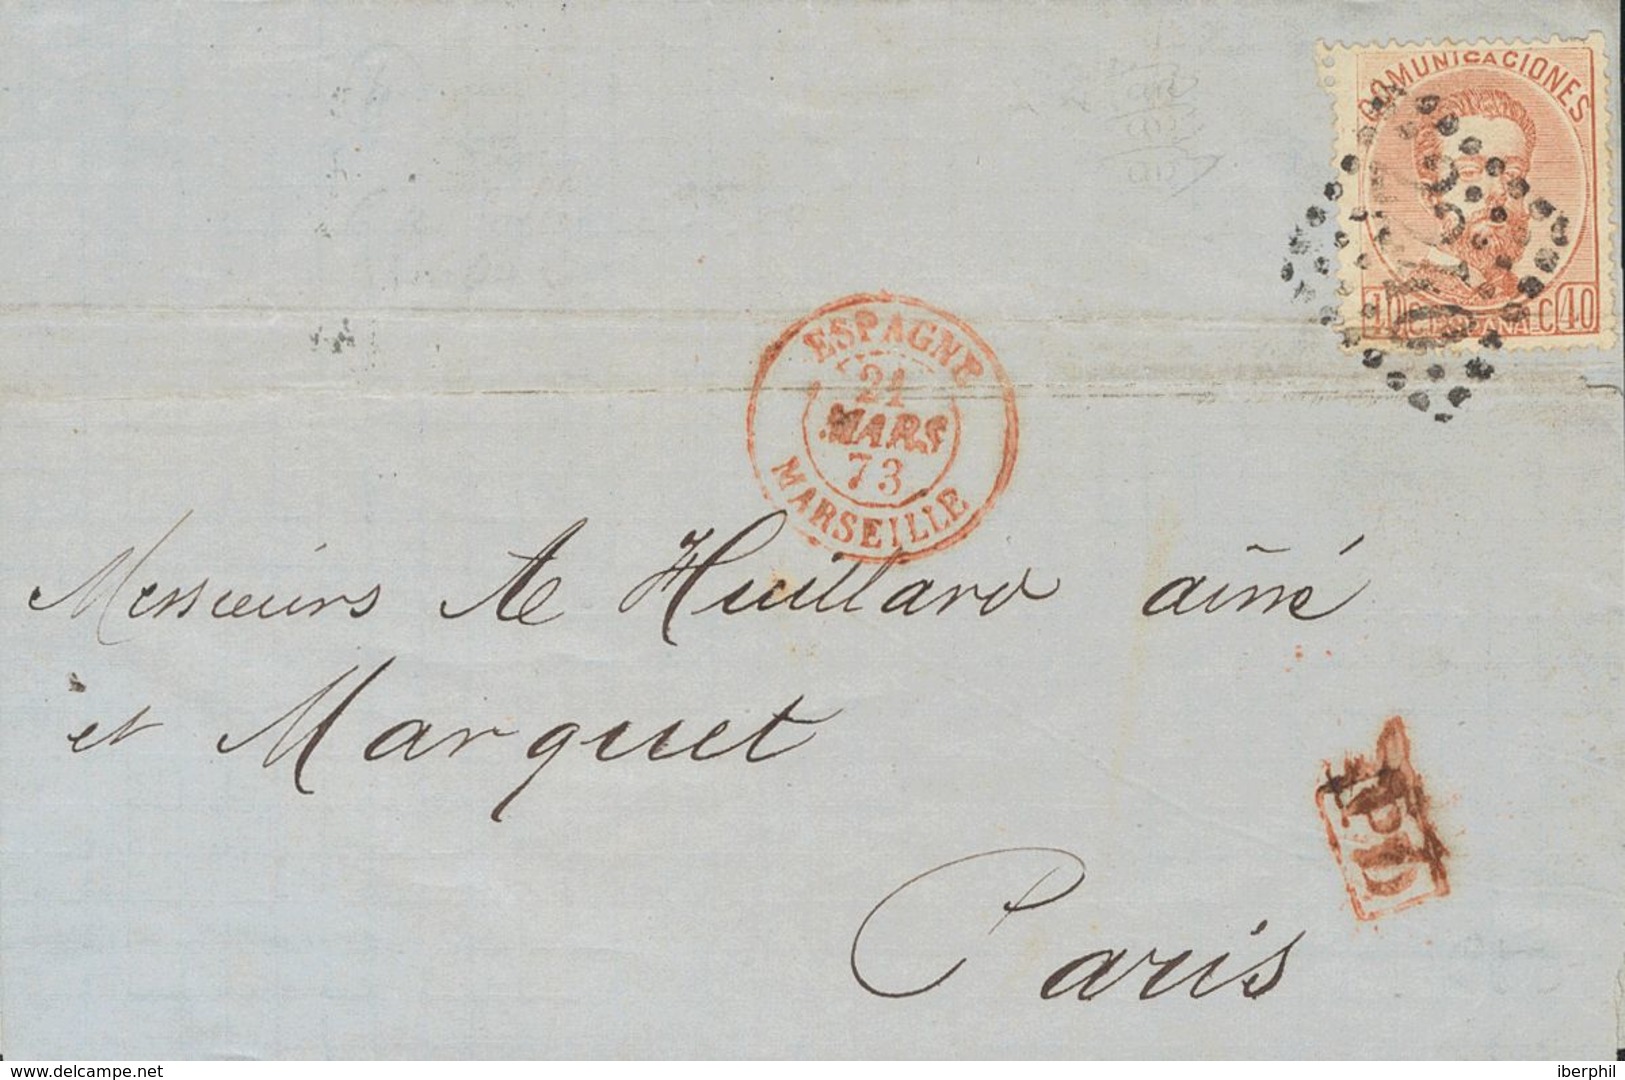 COMUNICACIONES
40 C. ESPAÑA C. 40
2240
ESPAGNE
21
MARS
73
MARSEILLE
Messieurs Ae Huillard ainé
et Marquet
PD
Paris
delcampe.net
iberphil